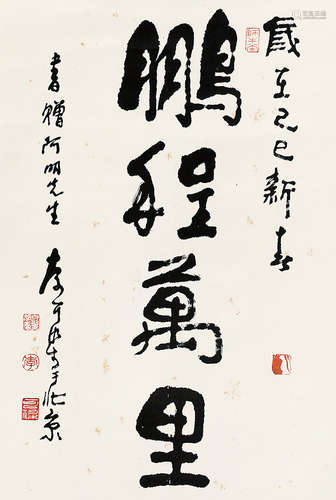 歲在己巳新春
鵬程萬里
書贈阿明先生
李可染於北京